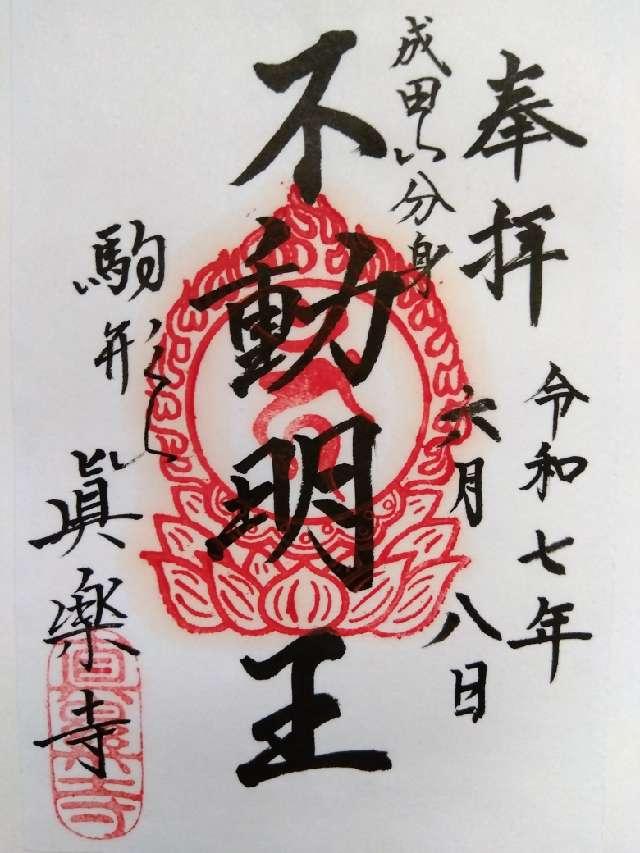 奉拝
令和七年
六月八日
成田山分身
不動明王
駒形
眞樂寺